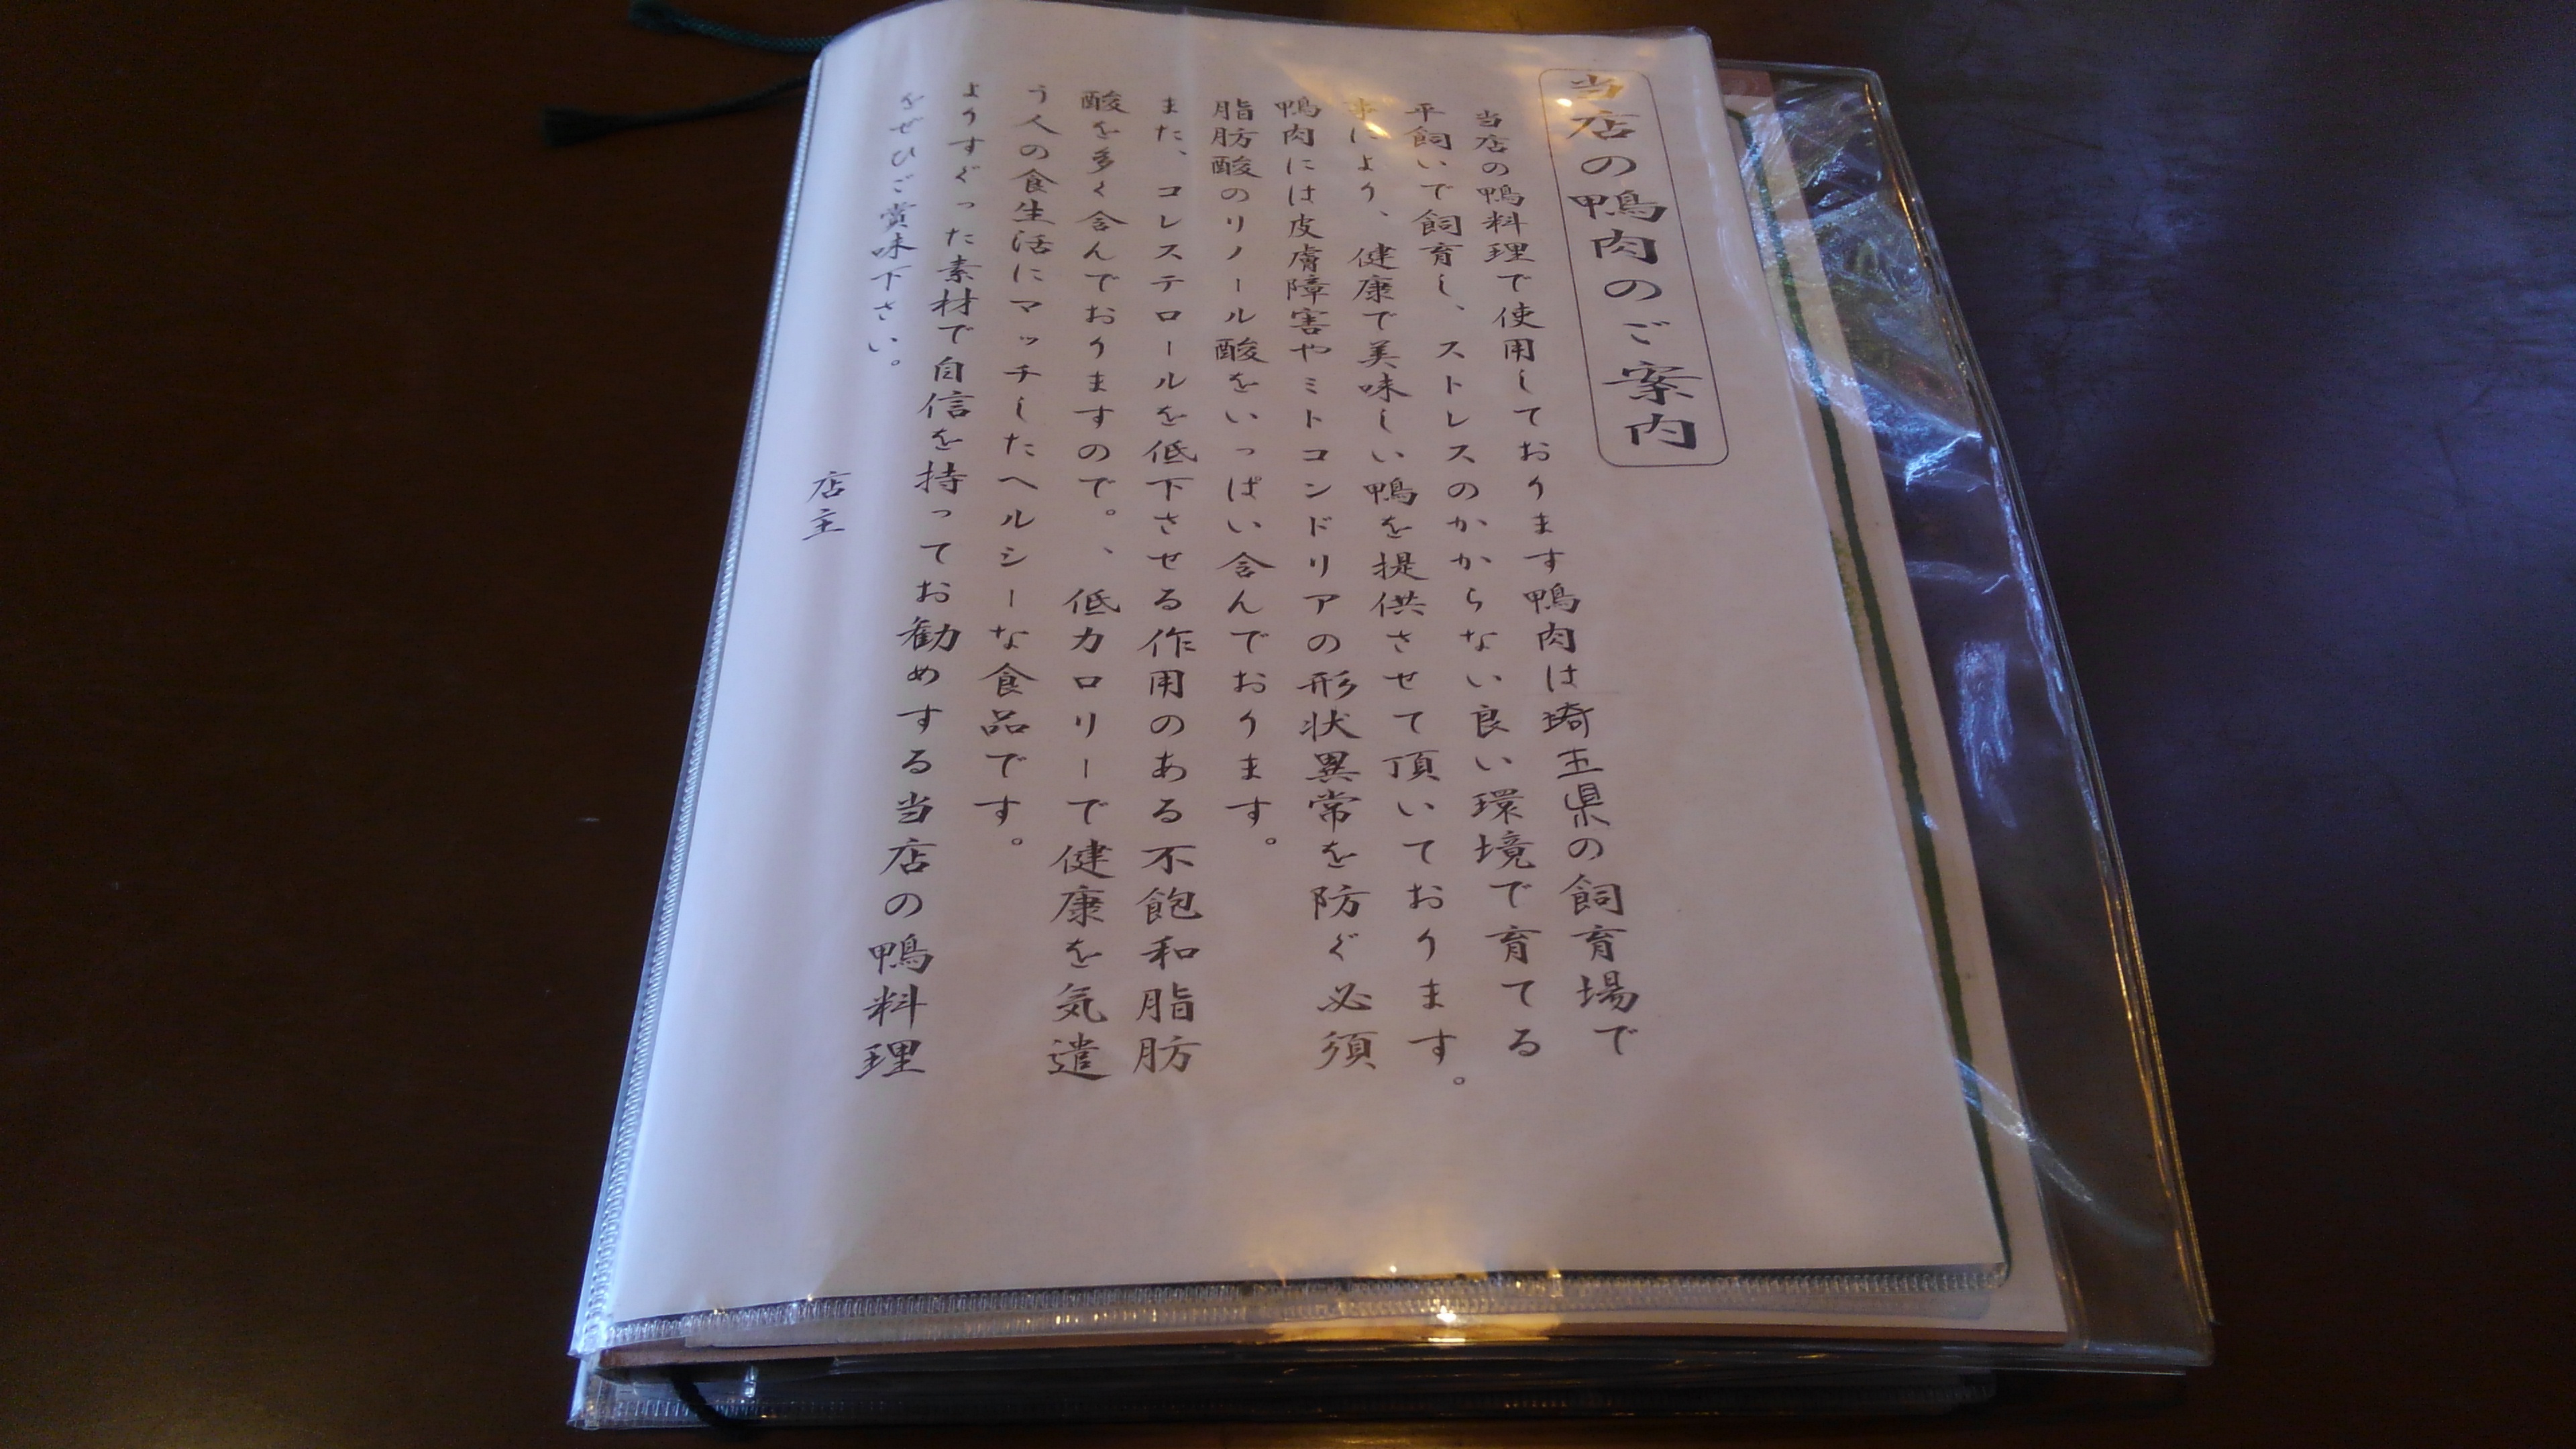 当店の鴨肉のご案内
当店の鴨料理で使用しております鴨肉は埼玉県の飼育場で
平飼いで飼育し、ストレスのかからない良い環境で育てる
事により、健康で美味しい鴨を提供させて頂いております。
鴨肉には皮膚障害やミトコンドリアの形状異常を防ぐ必須
脂肪酸のリノール酸をいっぱい含んでおります。
また、コレステロールを低下させる作用のある不飽和脂肪
酸を多く含んでおりますので。、低カロリーで健康を気遣
う人の食生活にマッチしたヘルシーな食品です。
よりすぐった素材で自信を持ってお勧めする当店の鴨料理
をぜひご賞味下さい。
店主